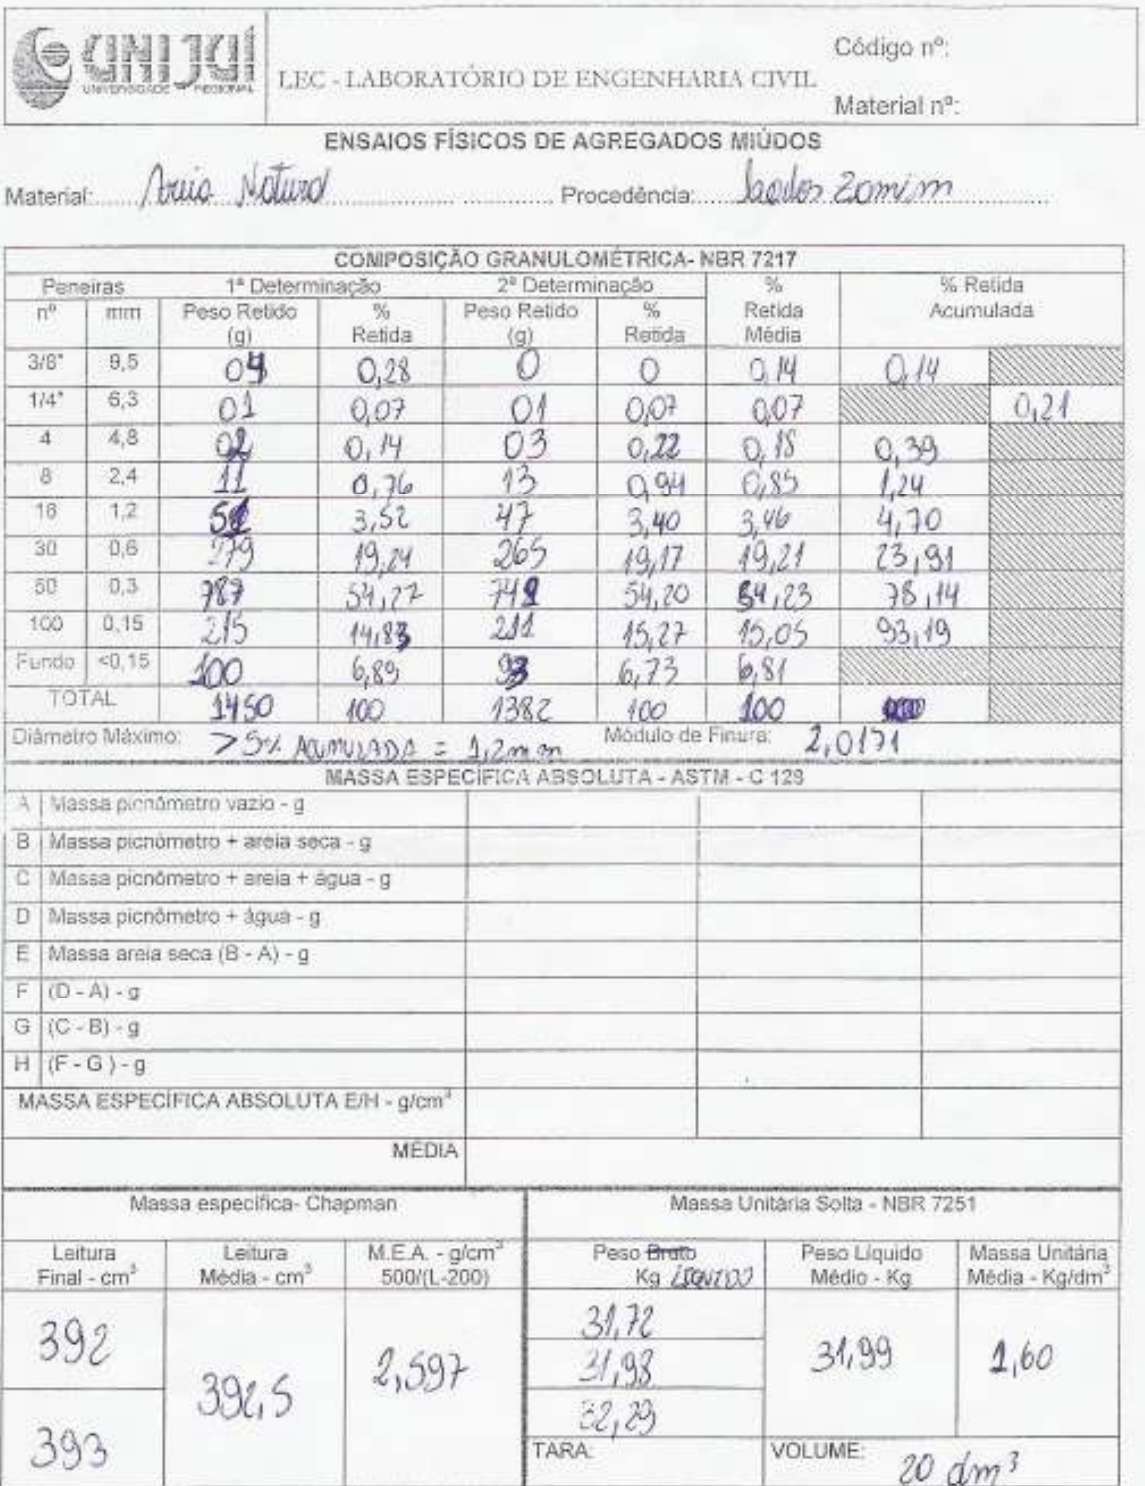 UNIJUÍ
UNIVERSIDADE REGIONAL
LEC - LABORATÓRIO DE ENGENHARIA CIVIL
Código nº:
Material nº:
ENSAIOS FÍSICOS DE AGREGADOS MIÚDOS
Material: Areia Natural Procedência:
COMPOSIÇÃO GRANULOMÉTRICA- NBR 7217
Peneiras 1ª Determinação 2ª Determinação % Retida Média % Retida Acumulada
nº mm Peso Retido (g) % Retida Peso Retido (g) % Retida
3/8" 9,5 04 0,28 0 0 0,14 0,14
1/4" 6,3 01 0,07 01 0,07 0,07 0,21
4 4,8 02 0,14 03 0,22 0,18 0,39
8 2,4 11 0,76 13 0,94 0,85 1,24
16 1,2 51 3,52 47 3,40 3,46 4,70
30 0,6 279 19,24 265 19,17 19,21 23,91
50 0,3 787 54,27 749 54,20 54,23 78,14
100 0,15 215 14,83 211 15,27 15,05 93,19
Fundo <0,15 100 6,89 93 6,73 6,81
TOTAL 1450 100 1382 100 100
Diâmetro Máximo: > 5% ACUMULADA = 1,2mm Módulo de Finura: 2,0171
MASSA ESPECÍFICA ABSOLUTA - ASTM - C 128
A Massa picnômetro vazio - g
B Massa picnômetro + areia seca - g
C Massa picnômetro + areia + água - g
D Massa picnômetro + água - g
E Massa areia seca (B - A) - g
F (D - A) - g
G (C - B) - g
H (F - G ) - g
MASSA ESPECÍFICA ABSOLUTA E/H - g/cm³
MÉDIA
Massa especifica- Chapman Massa Unitária Solta - NBR 7251
Leitura Final - cm³ Leitura Média - cm³ M.E.A. - g/cm³ 500/(L-200) Peso Bruto Kg LÍQUIDO Peso Líquido Médio - Kg Massa Unitária Média - Kg/dm³
392 392,5 2,597 31,72 31,99 1,60
31,98
393 32,29
TARA: VOLUME: 20 dm³